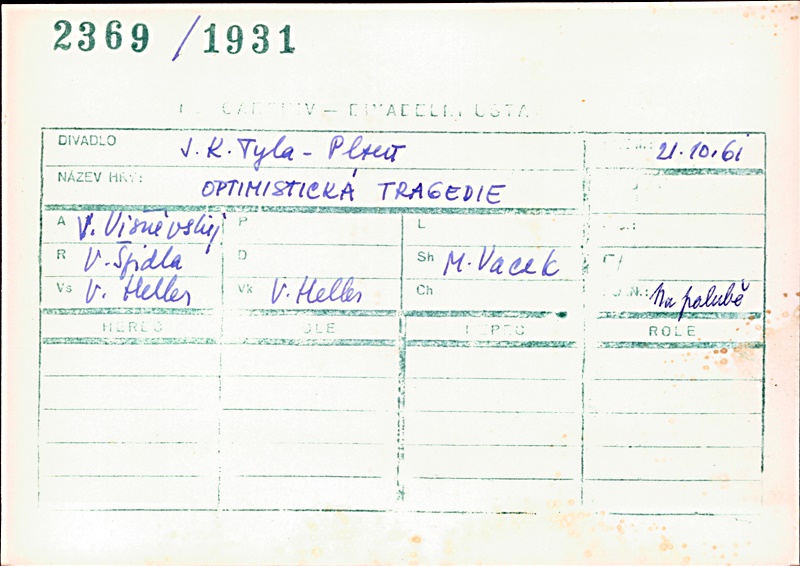 2369 / 1931
DIVADLO J. K. Tyla - Plzeň 21.10.61
NÁZEV HRY: OPTIMISTICKÁ TRAGEDIE
A V. Višněvskij P L
R V. Špidla D Sh M. Vacek
Vs V. Heller Vk V. Heller Ch Na palubě
HEREC ROLE HEREC ROLE